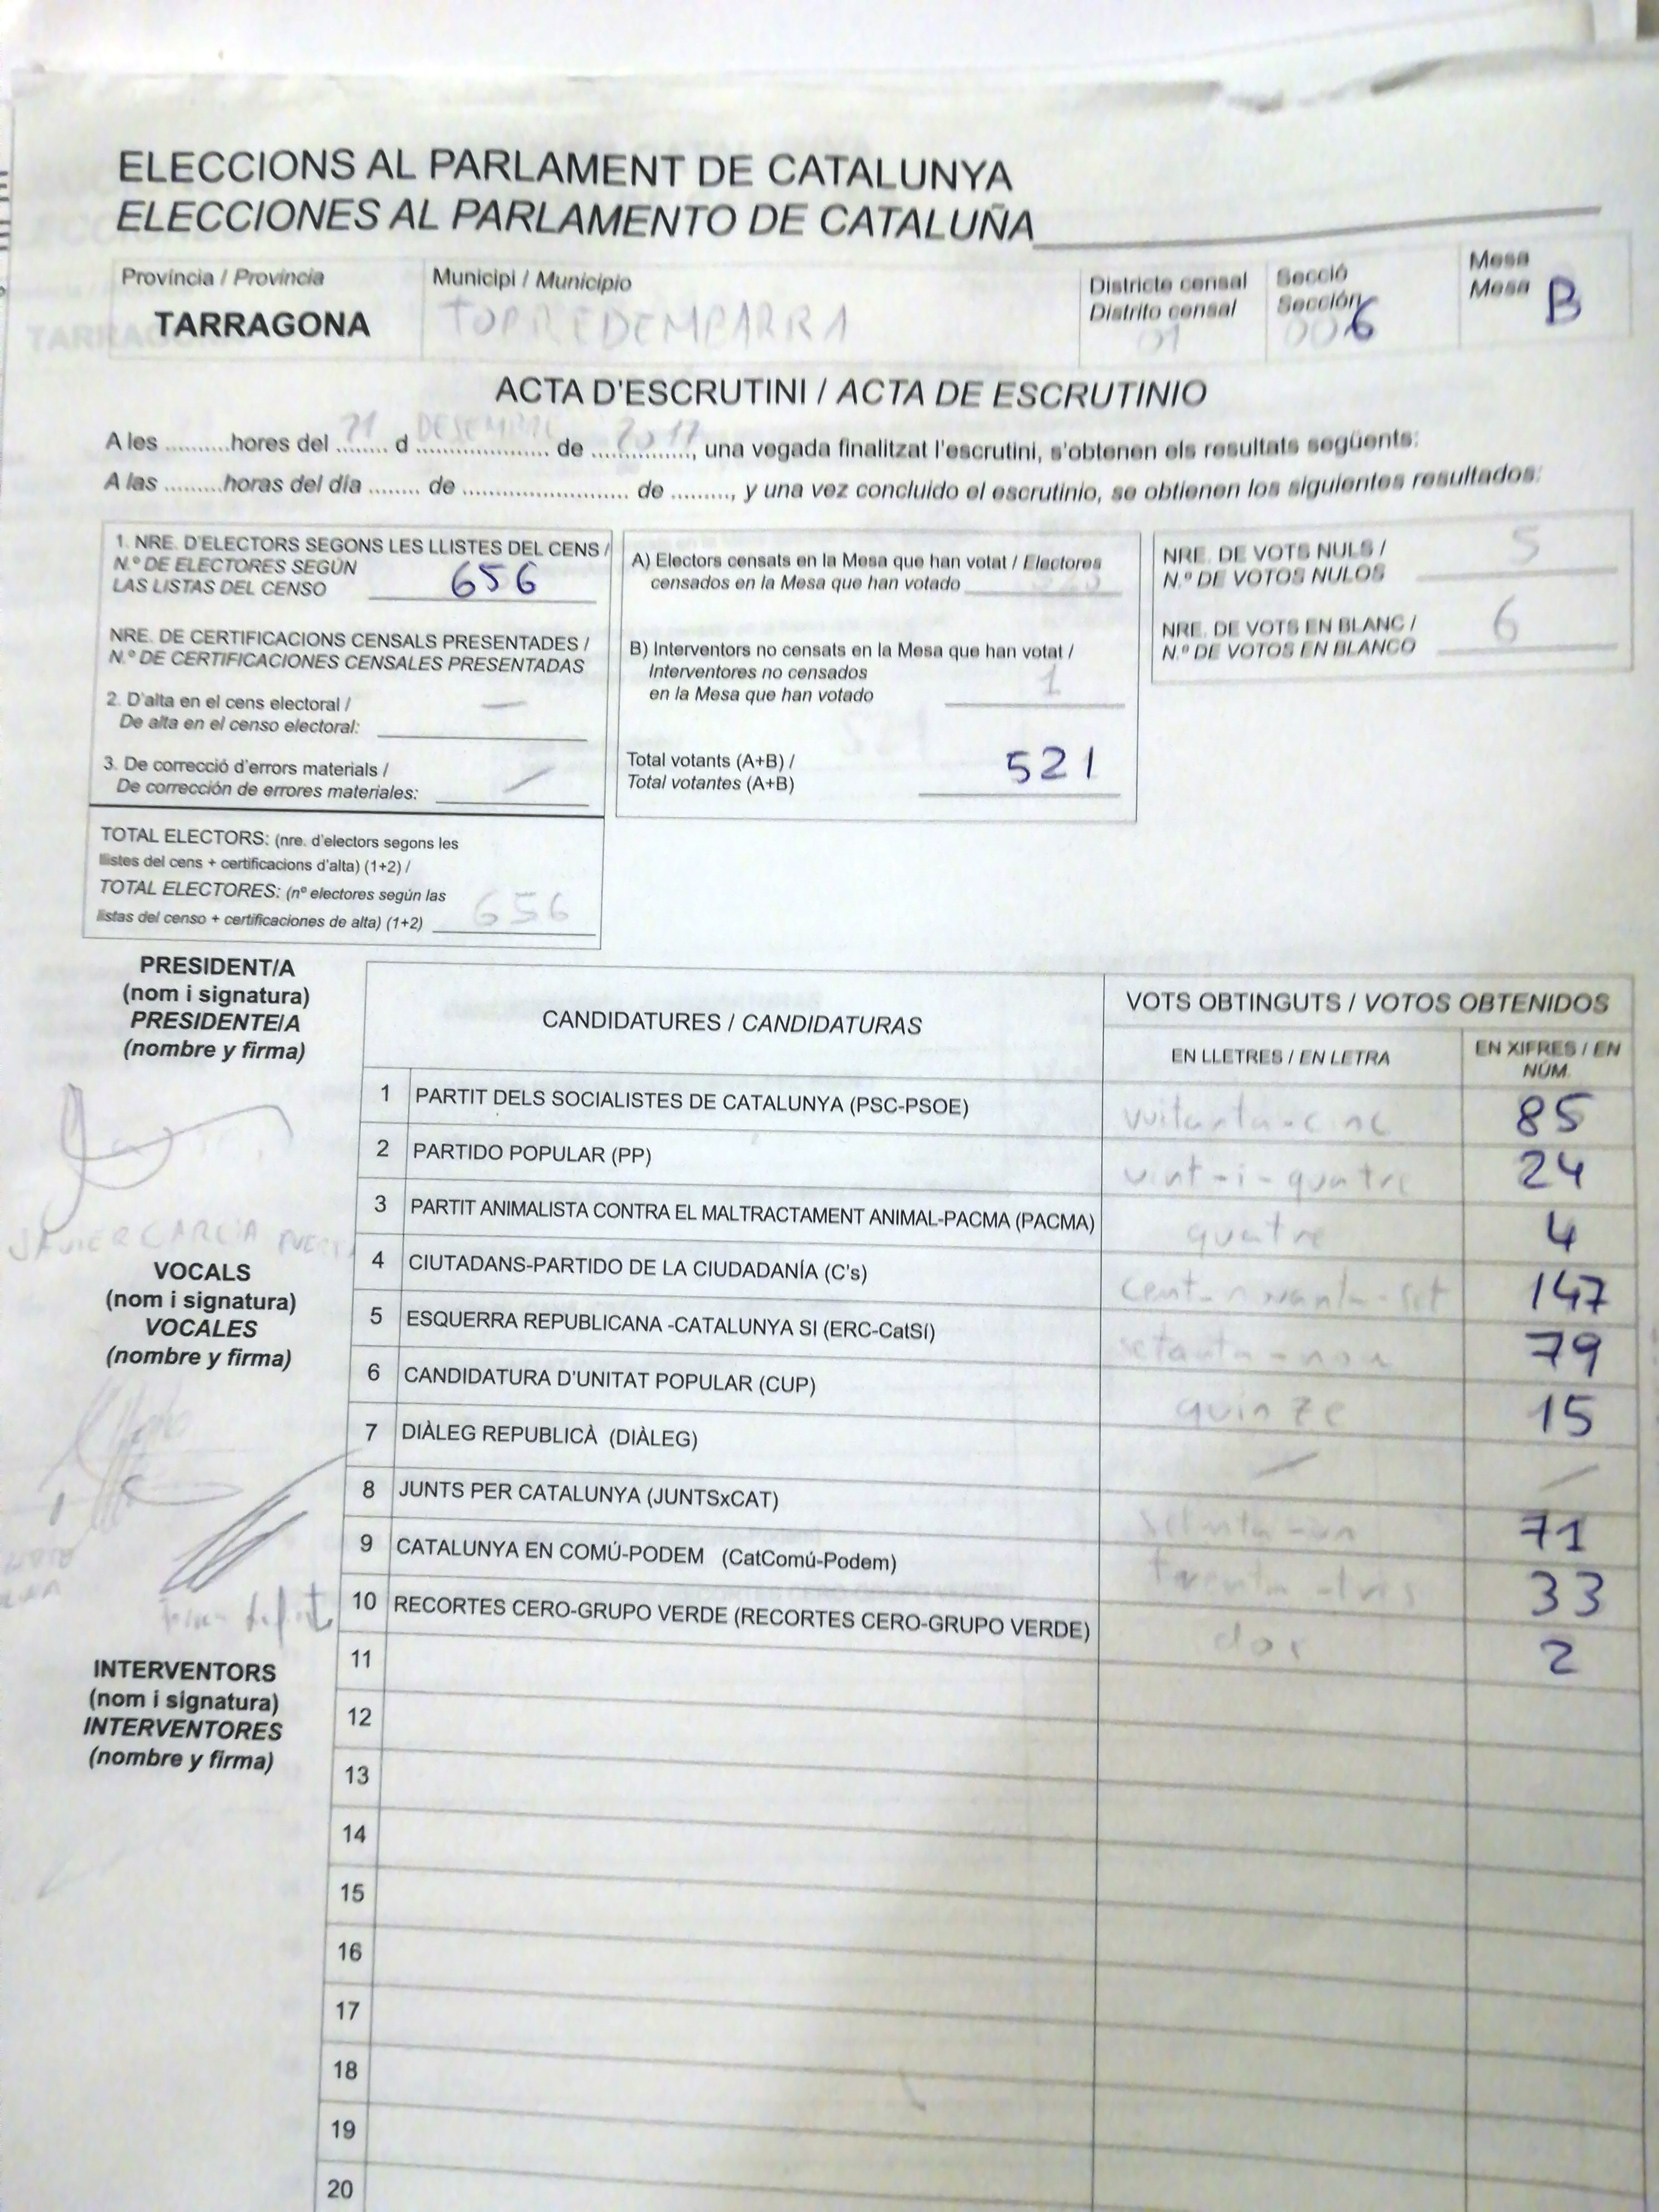 ELECCIONS AL PARLAMENT DE CATALUNYA
ELECCIONES AL PARLAMENTO DE CATALUÑA
Província / Provincia
TARRAGONA
Municipi / Municipio
TORREDEMBARRA
Districte censal
Distrito censal
01
Secció
Sección
006
Mesa
Mesa B
ACTA D'ESCRUTINI / ACTA DE ESCRUTINIO
A les .........hores del 21 d DESEMBRE de 2017, una vegada finalitzat l'escrutini, s'obtenen els resultats següents:
A las .........horas del día ........ de ............................ de .........., y una vez concluido el escrutinio, se obtienen los siguientes resultados:
1. NRE. D'ELECTORS SEGONS LES LLISTES DEL CENS /
N.º DE ELECTORES SEGÚN
LAS LISTAS DEL CENSO 656
NRE. DE CERTIFICACIONS CENSALS PRESENTADES /
N.º DE CERTIFICACIONES CENSALES PRESENTADAS
2. D'alta en el cens electoral /
De alta en el censo electoral: —
3. De correcció d'errors materials /
De corrección de errores materiales: —
TOTAL ELECTORS: (nre. d'electors segons les
llistes del cens + certificacions d'alta) (1+2) /
TOTAL ELECTORES: (nº electores según las
listas del censo + certificaciones de alta) (1+2) 656
A) Electors censats en la Mesa que han votat / Electores
censados en la Mesa que han votado
B) Interventors no censats en la Mesa que han votat /
Interventores no censados
en la Mesa que han votado 1
Total votants (A+B) /
Total votantes (A+B) 521
NRE. DE VOTS NULS /
N.º DE VOTOS NULOS 5
NRE. DE VOTS EN BLANC /
N.º DE VOTOS EN BLANCO 6
PRESIDENT/A
(nom i signatura)
PRESIDENTE/A
(nombre y firma)
JAVIER GARCIA
VOCALS
(nom i signatura)
VOCALES
(nombre y firma)
INTERVENTORS
(nom i signatura)
INTERVENTORES
(nombre y firma)
CANDIDATURES / CANDIDATURAS
VOTS OBTINGUTS / VOTOS OBTENIDOS
EN LLETRES / EN LETRA
EN XIFRES / EN
NÚM.
1 PARTIT DELS SOCIALISTES DE CATALUNYA (PSC-PSOE) vuitanta-cinc 85
2 PARTIDO POPULAR (PP) vint-i-quatre 24
3 PARTIT ANIMALISTA CONTRA EL MALTRACTAMENT ANIMAL-PACMA (PACMA) quatre 4
4 CIUTADANS-PARTIDO DE LA CIUDADANÍA (C's) 147
5 ESQUERRA REPUBLICANA -CATALUNYA SI (ERC-CatSí) setanta-nou 79
6 CANDIDATURA D'UNITAT POPULAR (CUP) quinze 15
7 DIÀLEG REPUBLICÀ (DIÀLEG) — —
8 JUNTS PER CATALUNYA (JUNTSxCAT) setanta-un 71
9 CATALUNYA EN COMÚ-PODEM (CatComú-Podem) trenta-tres 33
10 RECORTES CERO-GRUPO VERDE (RECORTES CERO-GRUPO VERDE) dos 2
11
12
13
14
15
16
17
18
19
20